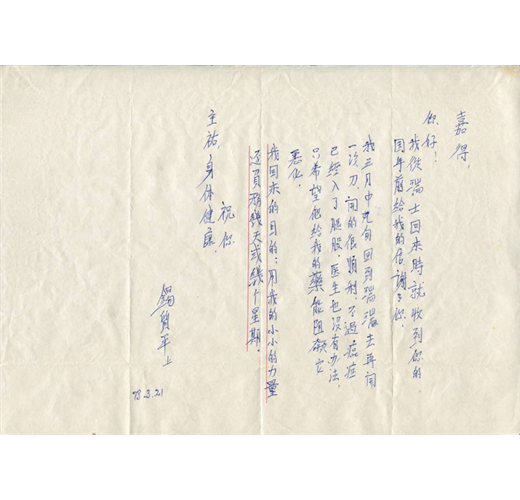 嘉得,
你好!
我從瑞士回來時就收到你的
国年前給我的信,謝々你。
我三月中旬回到瑞瑞去年同
一次刀,間的很順利,不過癌症
已經入了腿股,医生也没有办法,
只希望他給我的藥能阻碍它
惡化。
我回來的目的:用我的小小的力量
还賣福幾天或幾个星期。
祝你
主祐身体健康,
錫賀年上
78.3.21